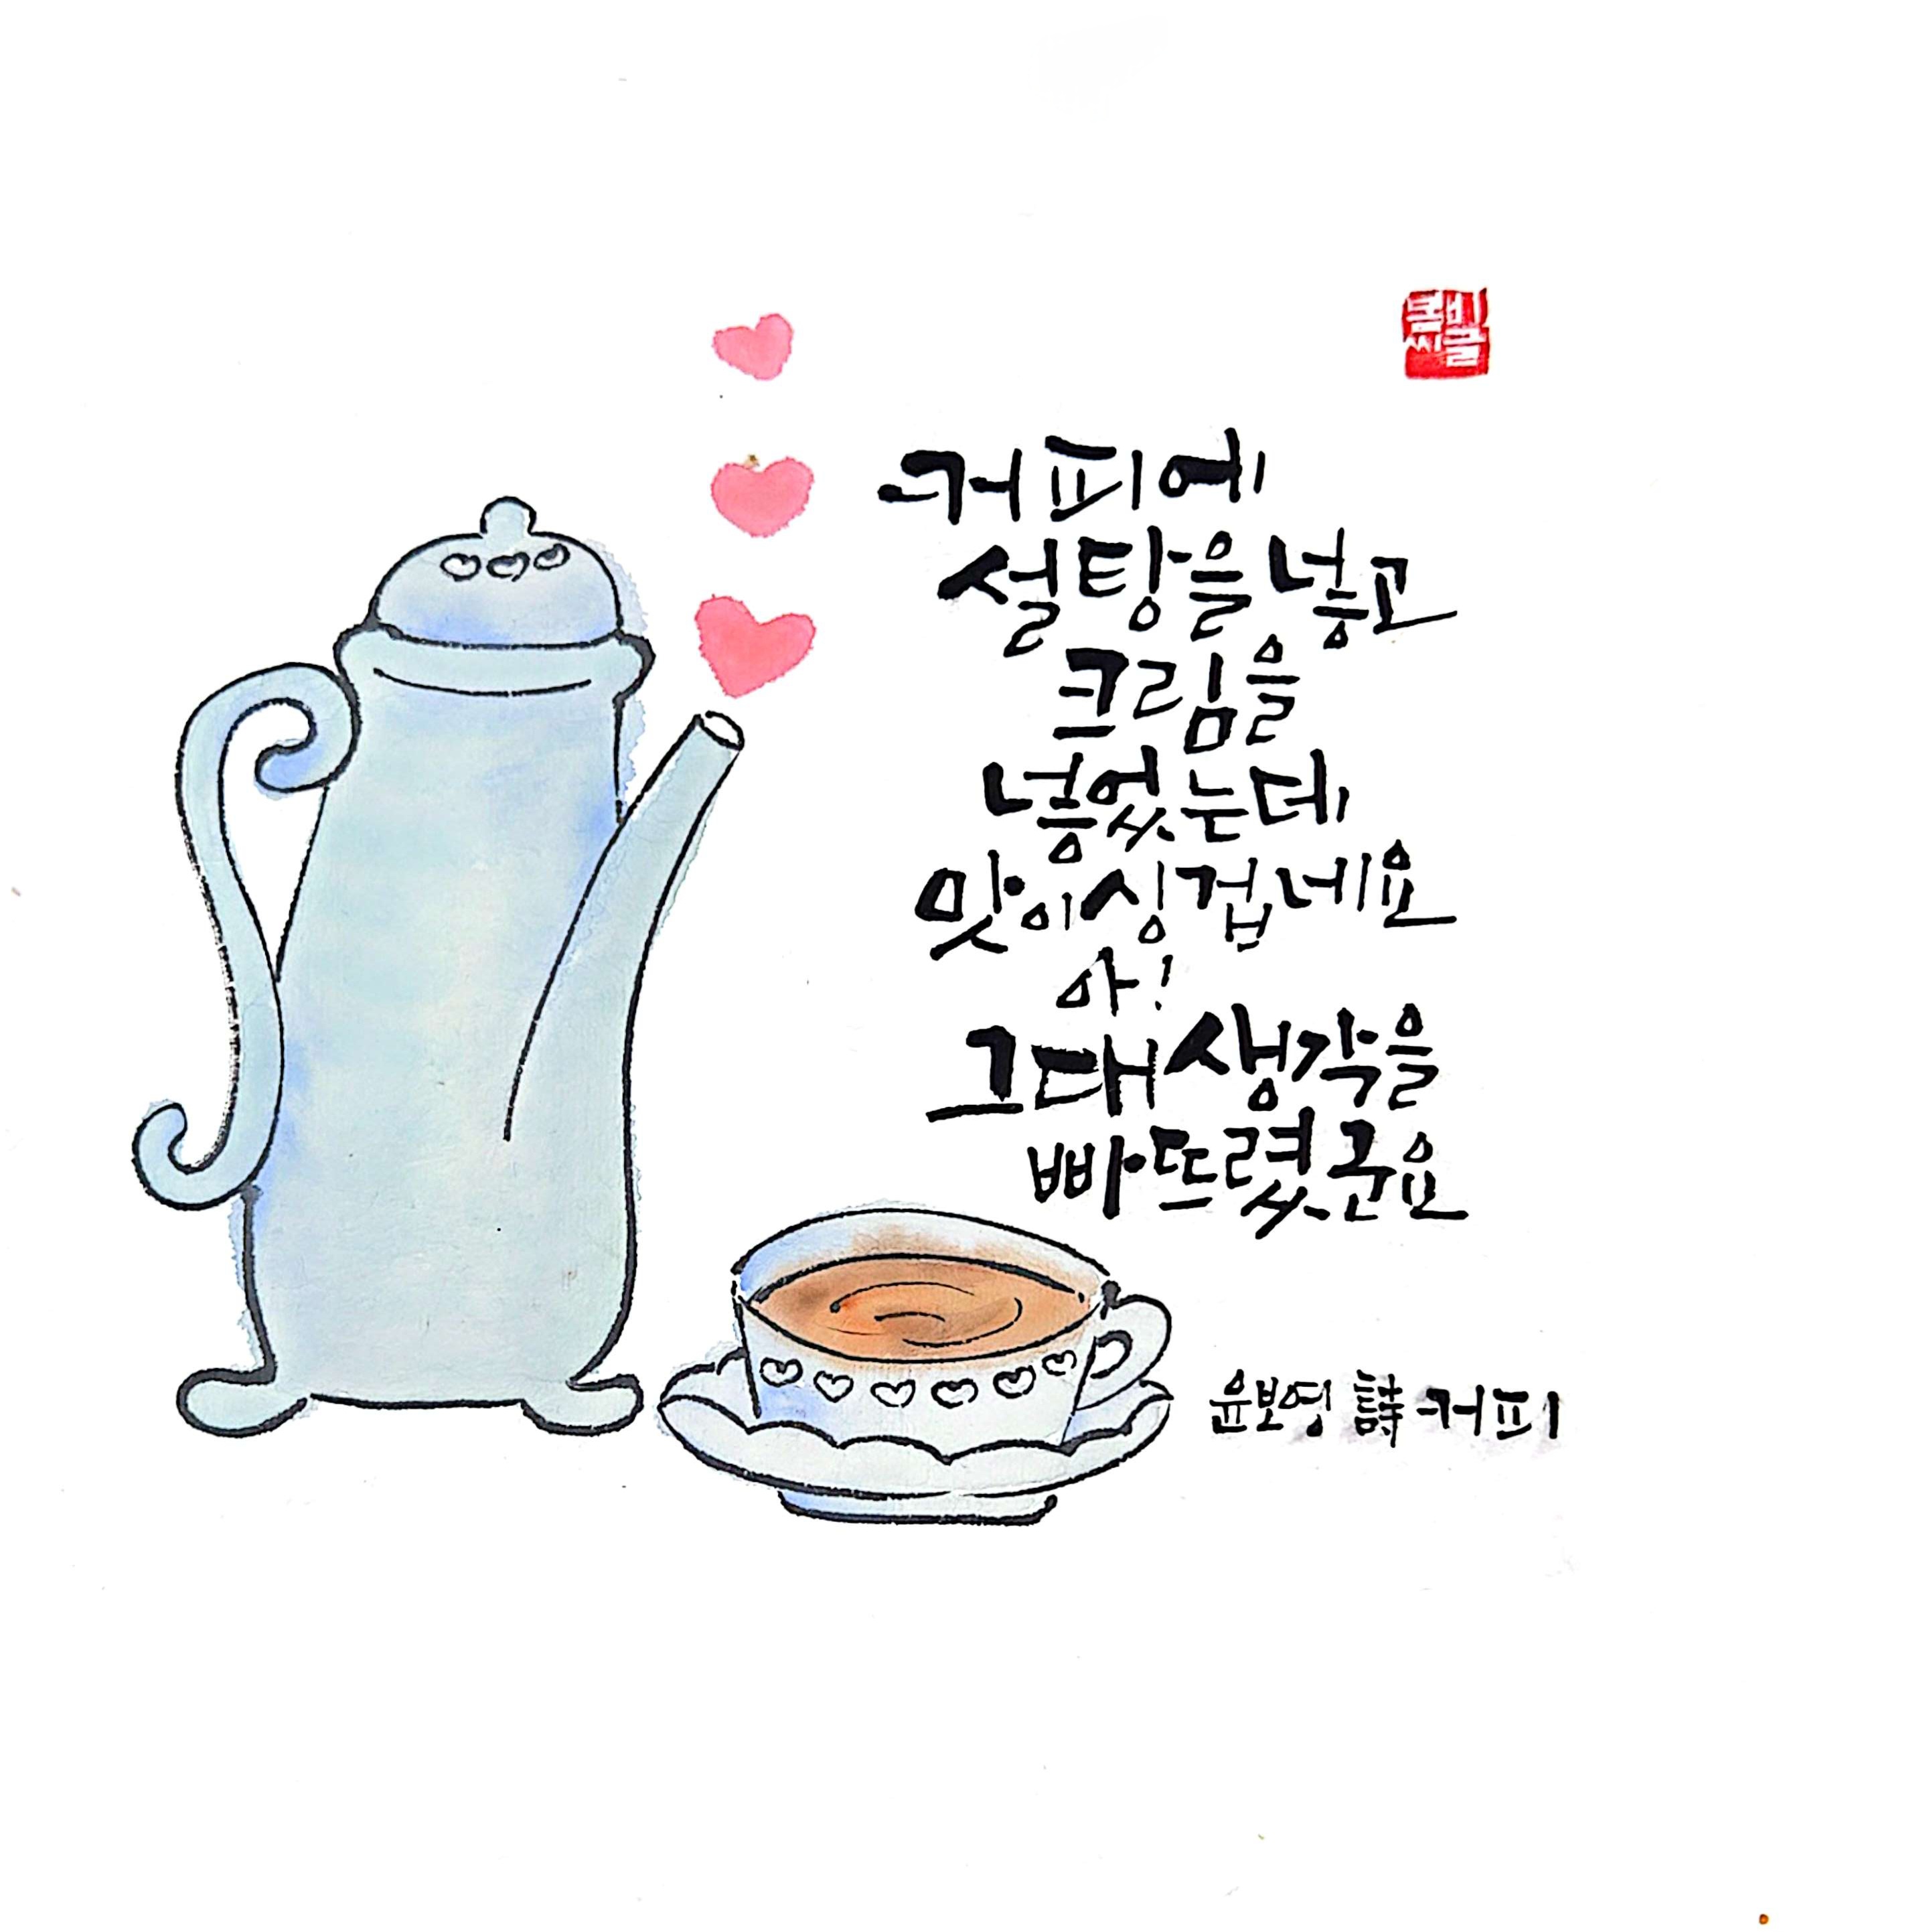 봄비
글씨
커피에
설탕을 넣고
크림을
넣었는데
맛이 싱겁네요
아!
그대 생각을
빠뜨렸군요
윤보영 詩 커피